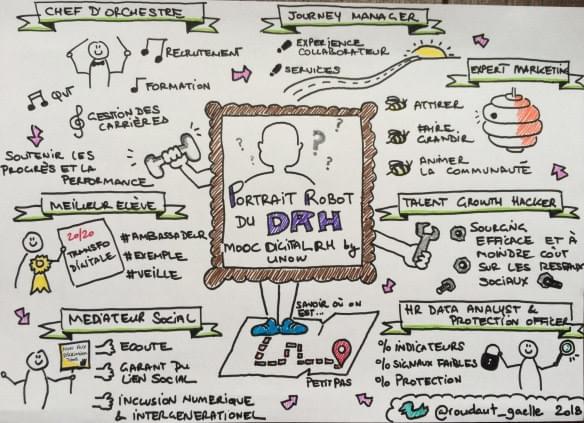 CHEF D'ORCHESTRE
RECRUTEMENT
FORMATION
QVT
GESTION DES
CARRIÈRES
SOUTENIR LES
PROGRÈS ET LA
PERFORMANCE
JOURNEY MANAGER
EXPÉRIENCE
COLLABORATEUR
SERVICES
EXPERT MARKETING
ATTIRER
FAIRE
GRANDIR
ANIMER
LA COMMUNAUTÉ
PORTRAIT ROBOT
DU DRH
MOOC DIGITAL RH by
UNOW
MEILLEUR ELÈVE
20/20
TRANSFO
DIGITALE
#AMBASSADEUR
#EXEMPLE
#VEILLE
TALENT GROWTH HACKER
SOURCING
EFFICACE ET À
MOINDRE COÛT
SUR LES RESEAUX
SOCIAUX
MEDIATEUR SOCIAL
ECOUTE
GARANT DU
LIEN SOCIAL
INCLUSION NUMERIQUE
& INTERGENERATIONEL
SAVOIR OÙ ON
EST...
PETIT PAS
HR DATA ANALYST &
PROTECTION OFFICER
% INDICATEURS
% SIGNAUX FAIBLES
% PROTECTION
@roudaut_gaelle 2018